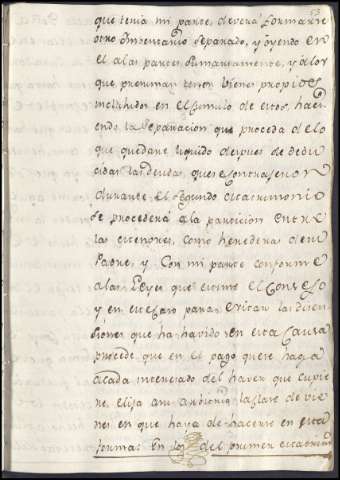 53
que tenia mi parte, deverá formarse
otro Imbentario separado, y oyendo en
el a las partes sumariamente, y a los
que presuman tener vienes propios
incluhidos en el cumulo de estos, haci
endo la separacion que proceda de lo
que quedare liquido despues de dedu
cidas las deudas, que se contrageron
durante el segundo Matrimonio
se procederá a la particion entre
las menores, como herederas de su
Padre, y con mi parte conforme
a las Leyes que
y en este caso para evitar las disen
siones que ha havido en esta Causa
procede, que en el pago que se haga
a cada interesado del haver que cupie
re, elija mi la clase de vie
nes en que haya de hacerse en esta
forma: En los del primer Matrimo